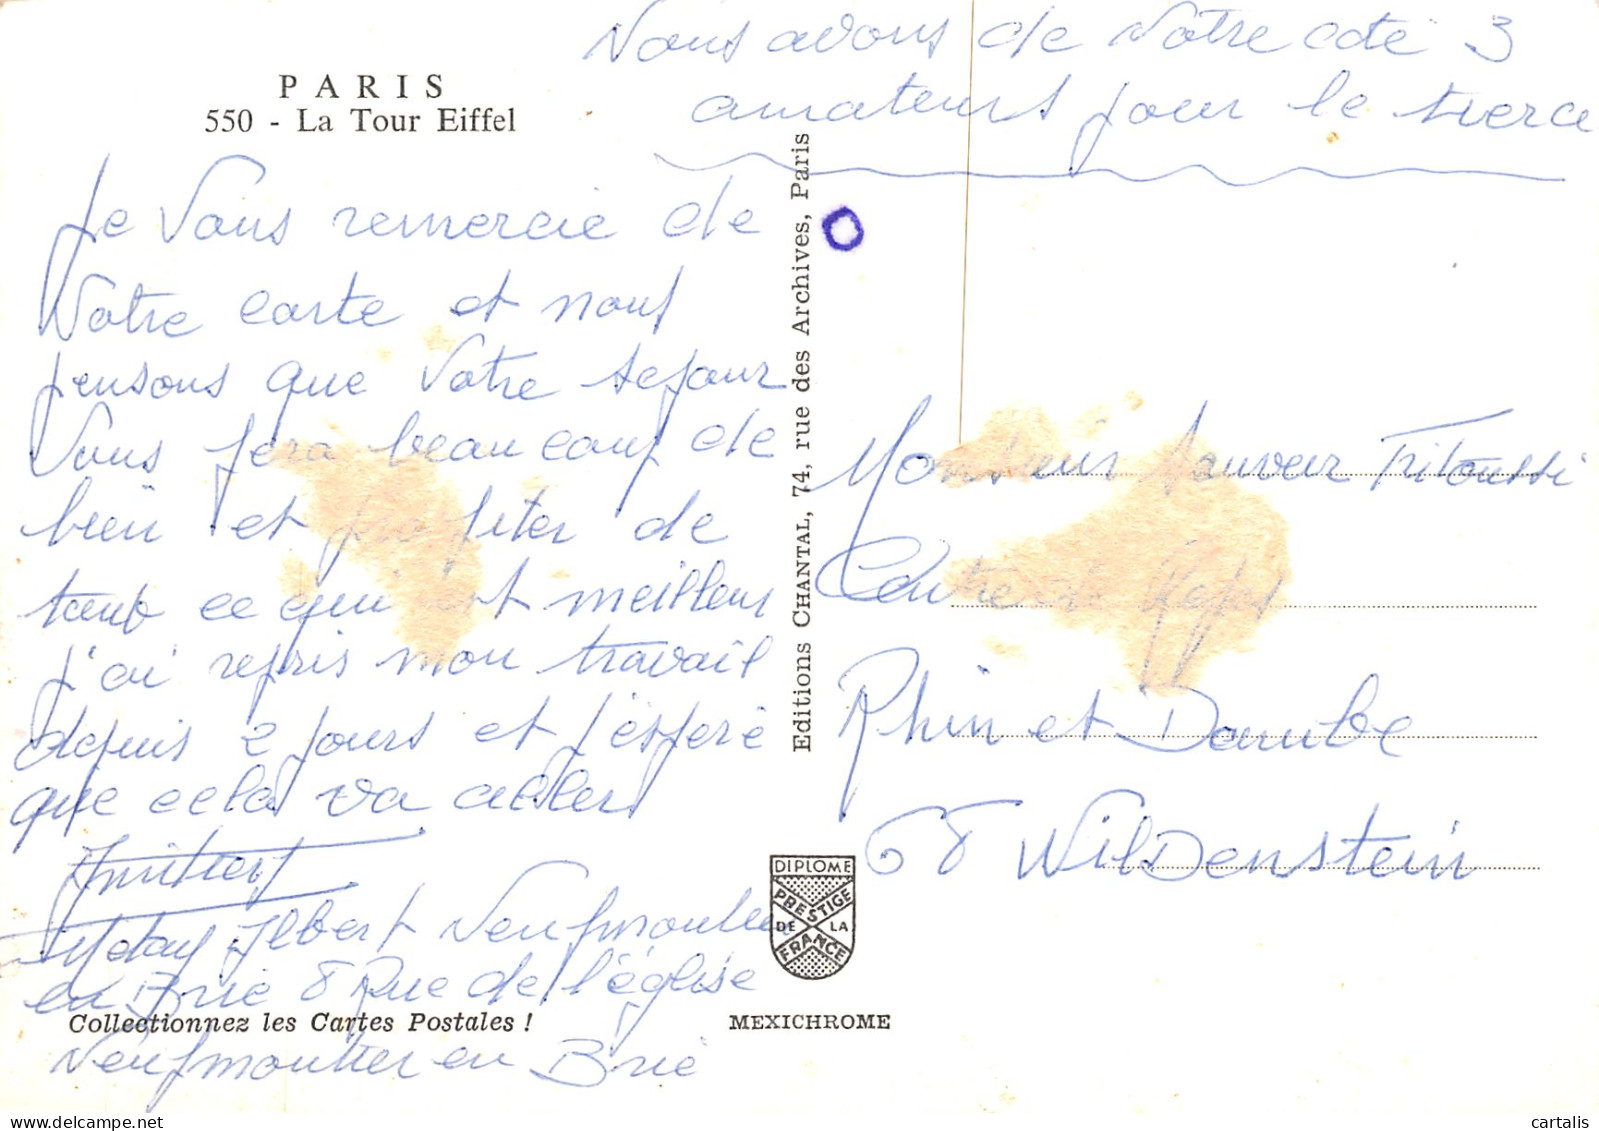 Nous avons de Votre coté 3
amateurs pour le tierce
PARIS
550 - La Tour Eiffel
Je Vous remercie de
Votre carte et nous
pensons que Votre sejour
Vous fera beaucoup de
bien et profiter de
tout ce qui est meilleur
j'ai repris mon travail
depuis 2 jours et j'espere
que cela va aller
Albert Neufmoutier
en Brie 8 Rue de l'église
Neufmoutier en Brie
Collectionnez les Cartes Postales !
Editions CHANTAL, 74, rue des Archives, Paris
DIPLOME
PRESTIGE
DE LA
FRANCE
MEXICHROME
Monsieur Sauveur
Centre de
Rhin et Danube
68 WilDenstein
cartalis